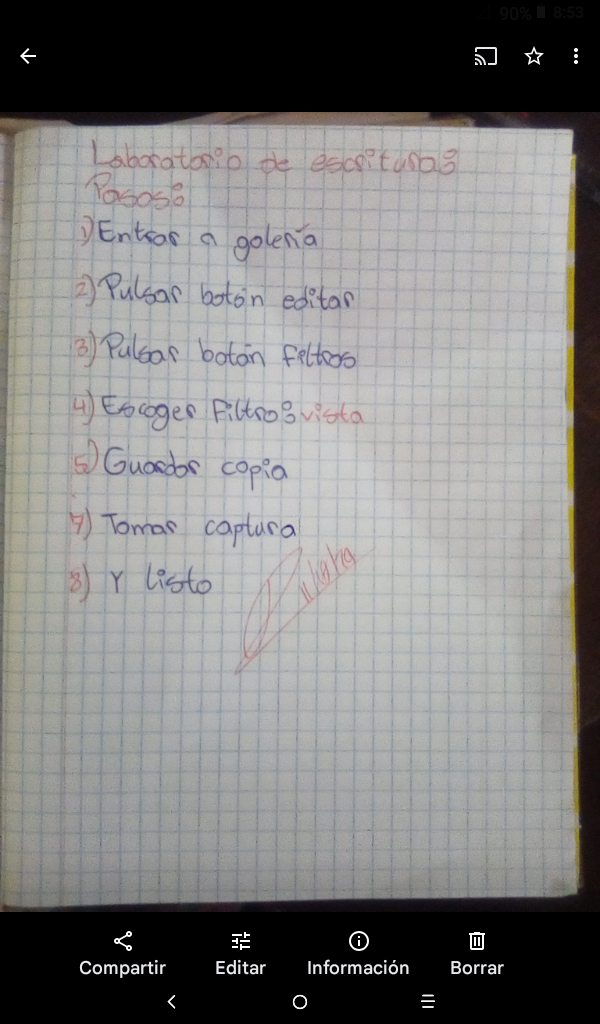 90% 8:53
Laboratorio de escritura:
Pasos:
1) Entrar a galería
2) Pulsar botón editar
3) Pulsar botón filtros
4) Escoger Filtro: vista
5) Guardar copia
7) Tomar captura
8) Y listo
Compartir Editar Información Borrar